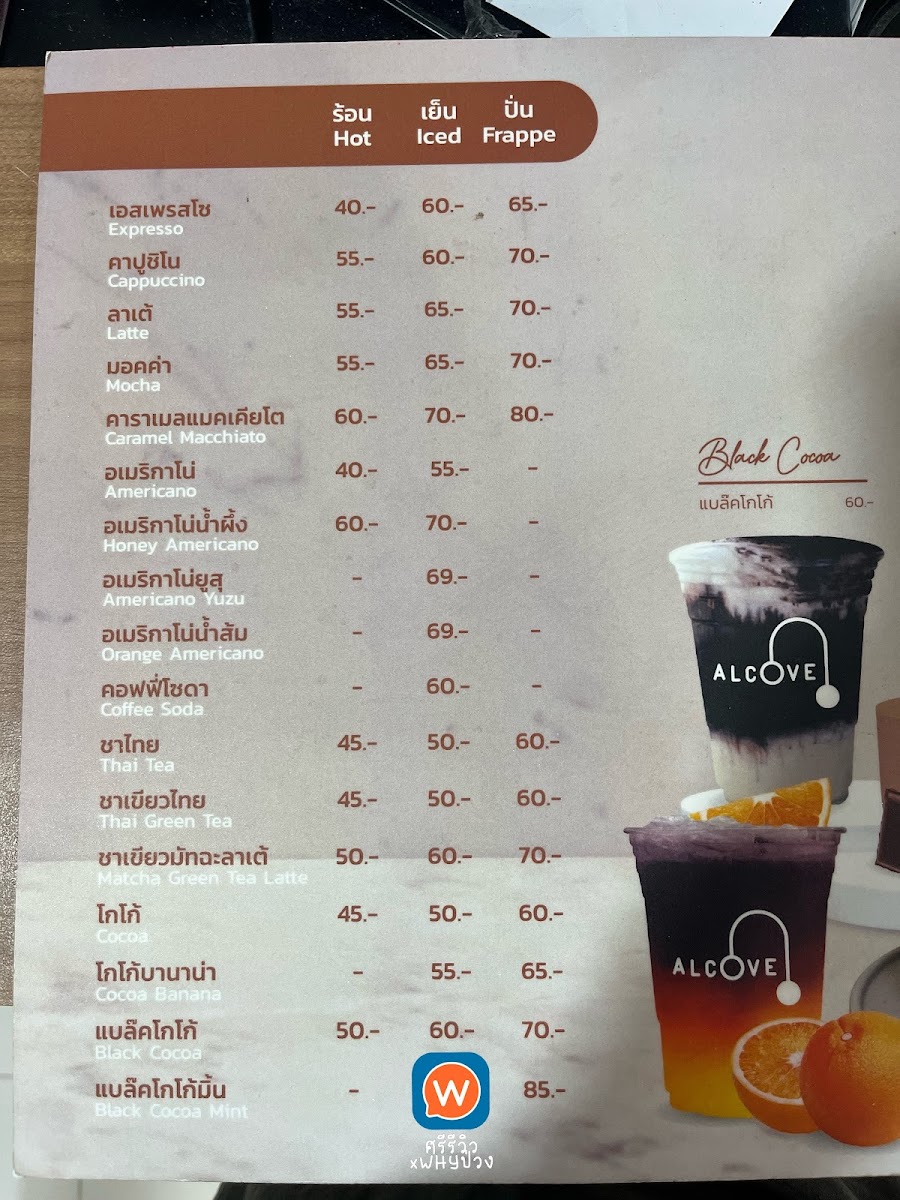 ร้อน เย็น ปั่น
Hot Iced Frappe
เอสเพรสโซ 40.- 60.- 65.-
Expresso
คาปูชิโน 55.- 60.- 70.-
Cappuccino
ลาเต้ 55.- 65.- 70.-
Latte
มอคค่า 55.- 65.- 70.-
Mocha
คาราเมลแมคเคียโต 60.- 70.- 80.-
Caramel Macchiato
อเมริกาโน่ 40.- 55.- -
Americano
อเมริกาโน่น้ำผึ้ง 60.- 70.- -
Honey Americano
อเมริกาโน่ยูสุ - 69.- -
Americano Yuzu
อเมริกาโน่น้ำส้ม - 69.- -
Orange Americano
คอฟฟี่โซดา - 60.- -
Coffee Soda
ชาไทย 45.- 50.- 60.-
Thai Tea
ชาเขียวไทย 45.- 50.- 60.-
Thai Green Tea
ชาเขียวมัทฉะลาเต้ 50.- 60.- 70.-
Matcha Green Tea Latte
โกโก้ 45.- 50.- 60.-
Cocoa
โกโก้บานาน่า - 55.- 65.-
Cocoa Banana
แบล๊คโกโก้ 50.- 60.- 70.-
Black Cocoa
แบล๊คโกโก้มิ้น - 85.-
Black Cocoa Mint
Black Cocoa
แบล๊คโกโก้ 60.-
ALCOVE
ALCOVE
W
ศรีรีวิว
xWHYป่วง